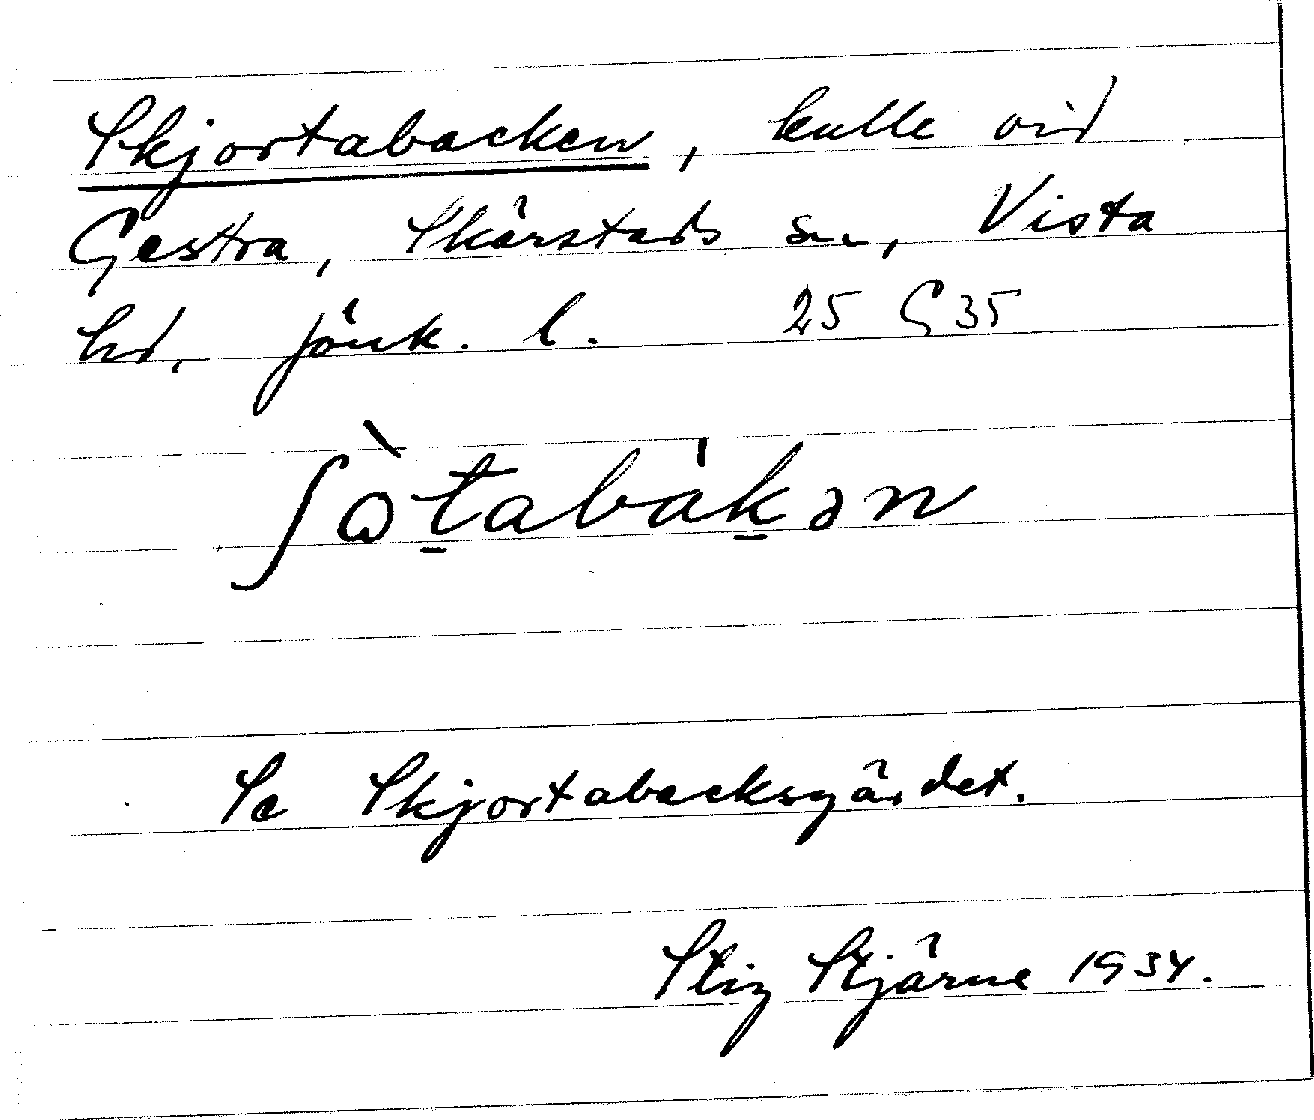 Skjortabacken, kulle vid
Gestra, Skärstads sn, Vista
hd, Jönk. l. 25 G 35
ʃɷ̀t̠abák̠ən
Se Skjortabacksgärdet.
Stig Stjärne 1934.